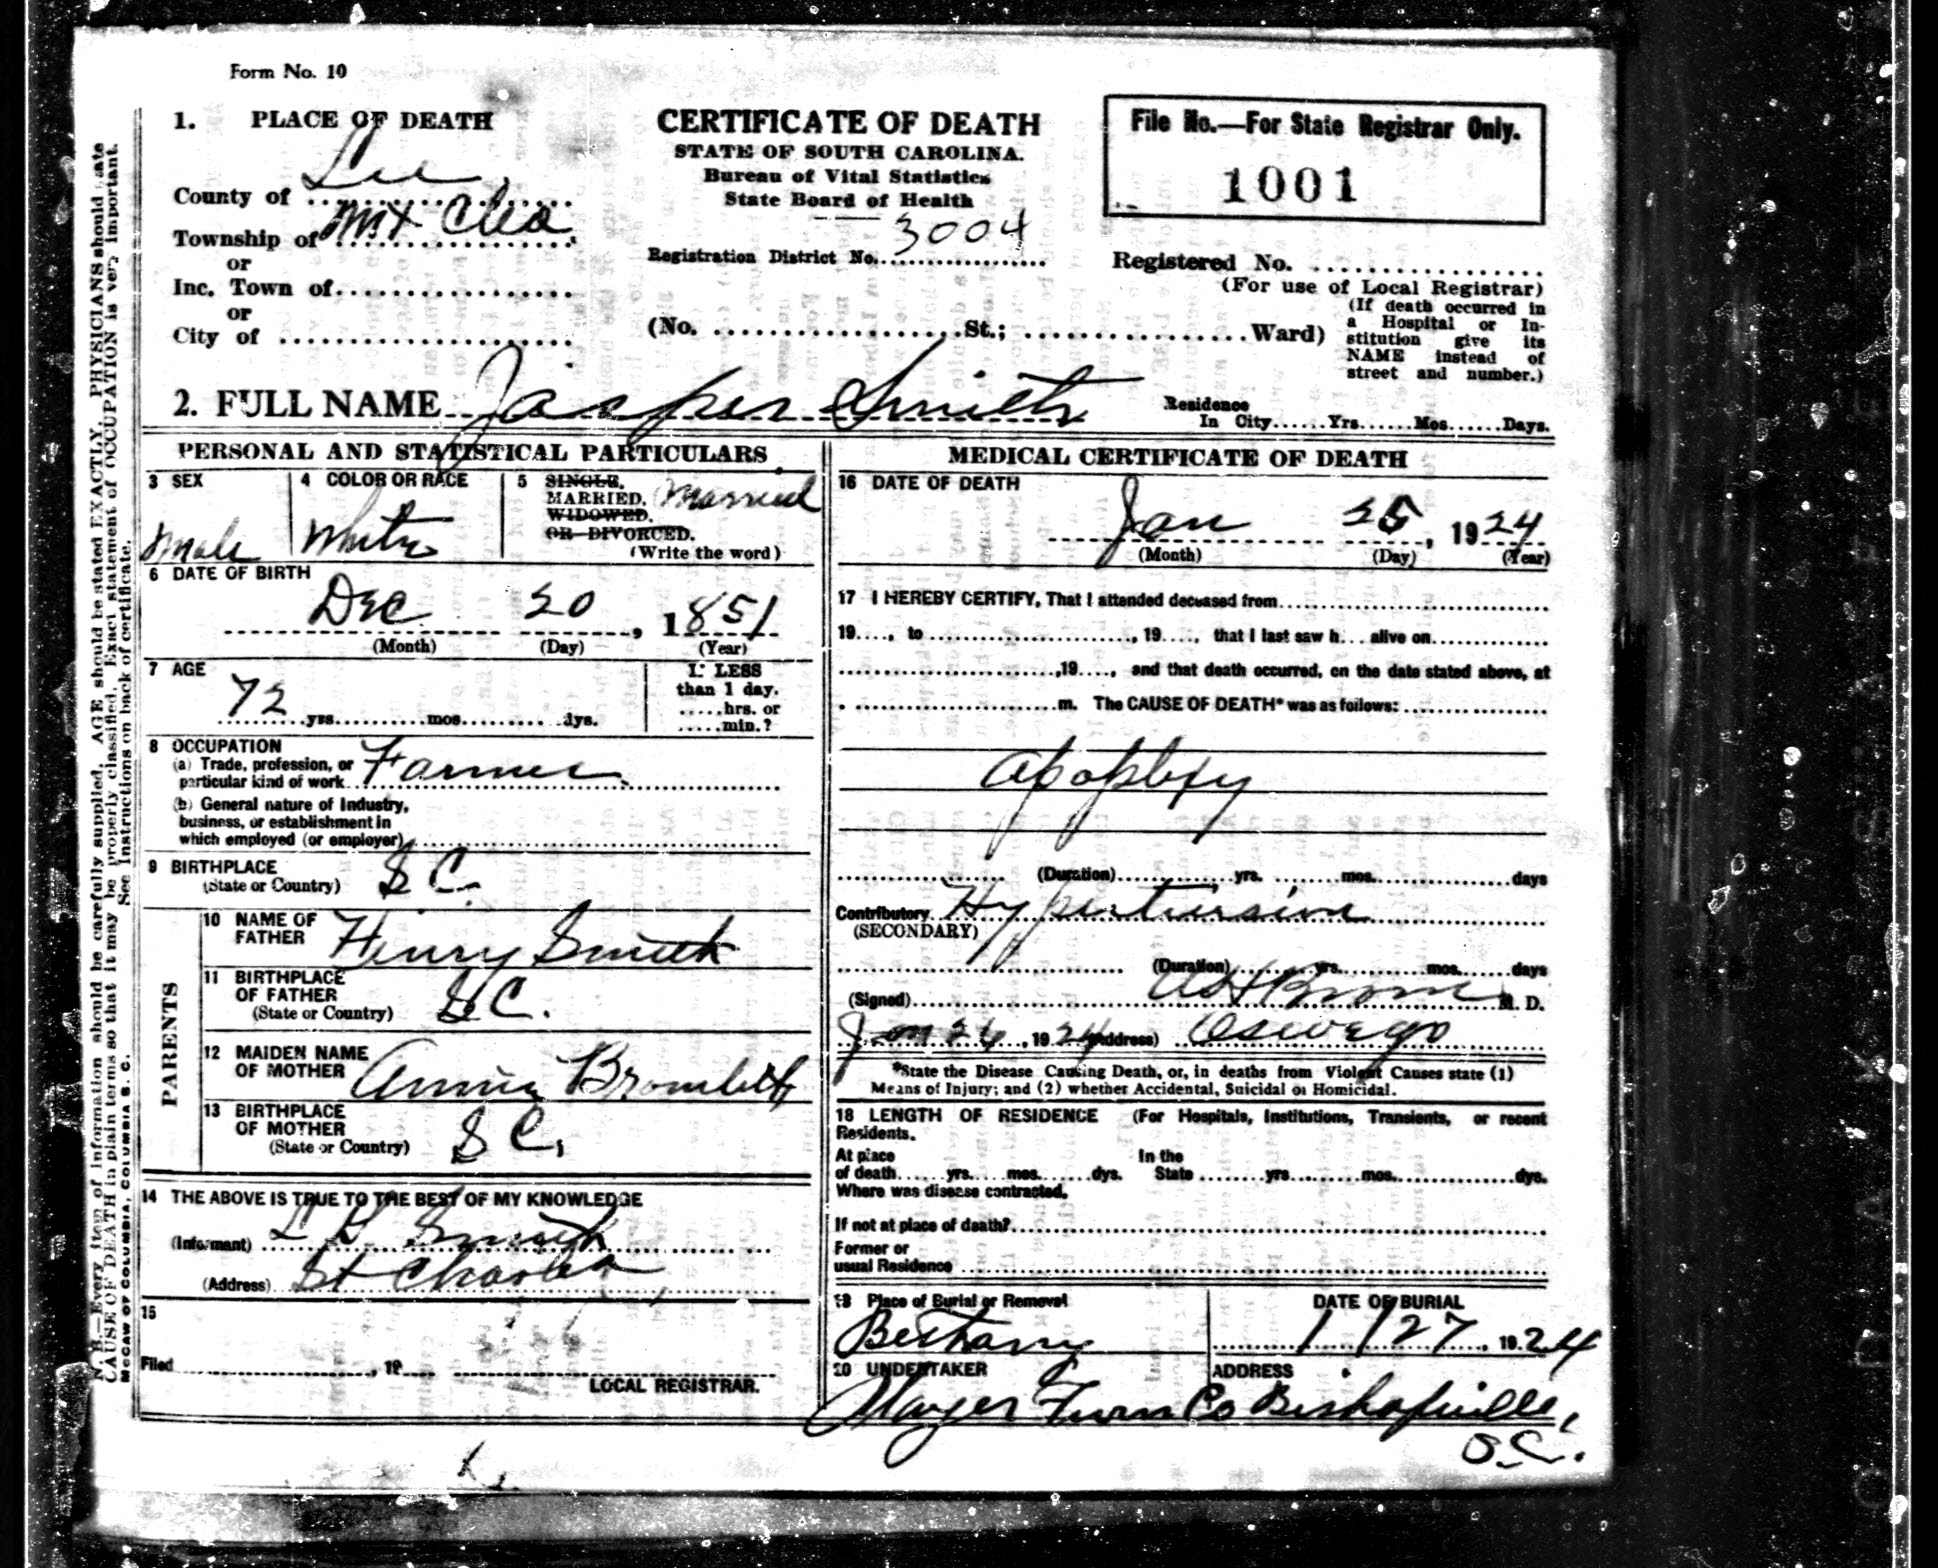 Form No. 10
1. PLACE OF DEATH
County of Lee
Township of Mt Clio
or
Inc. Town of
or
City of
CERTIFICATE OF DEATH
STATE OF SOUTH CAROLINA.
Bureau of Vital Statistics
State Board of Health
Registration District No. 3004
(No. St.; Ward)
File No.—For State Registrar Only.
1001
Registered No.
(For use of Local Registrar)
(If death occurred in
a Hospital or In-
stitution give its
NAME instead of
street and number.)
2. FULL NAME Jasper Smith
Residence
In City Yrs. Mos. Days.
PERSONAL AND STATISTICAL PARTICULARS
3 SEX
Male
4 COLOR OR RACE
White
5 SINGLE,
MARRIED, Married
WIDOWED,
OR DIVORCED.
(Write the word)
6 DATE OF BIRTH
Dec 20, 1851
(Month) (Day) (Year)
7 AGE
72 yrs. mos. dys.
If LESS
than 1 day.
hrs. or
min.?
8 OCCUPATION
(a) Trade, profession, or
particular kind of work Farmer
(b) General nature of Industry,
business, or establishment in
which employed (or employer)
9 BIRTHPLACE
(State or Country) S C.
PARENTS
10 NAME OF
FATHER Henry Smith
11 BIRTHPLACE
OF FATHER
(State or Country) S C.
12 MAIDEN NAME
OF MOTHER Annie
13 BIRTHPLACE
OF MOTHER
(State or Country) S C.
14 THE ABOVE IS TRUE TO THE BEST OF MY KNOWLEDGE
(Informant) Smith
(Address) St Charles
15
Filed , 19
LOCAL REGISTRAR.
MEDICAL CERTIFICATE OF DEATH
16 DATE OF DEATH
Jan 25, 1924
(Month) (Day) (Year)
17 I HEREBY CERTIFY, That I attended deceased from
19 , to , 19 , that I last saw h alive on
,19 , and that death occurred, on the date stated above, at
m. The CAUSE OF DEATH* was as follows:
Apoplexy
(Duration) yrs. mos. days
Contributory Hypertension
(SECONDARY)
(Duration) yrs. mos. days
(Signed) M. D.
Jan 26, 1924 (Address) Oswego
*State the Disease Causing Death, or, in deaths from Violent Causes state (1)
Means of Injury; and (2) whether Accidental, Suicidal or Homicidal.
18 LENGTH OF RESIDENCE (For Hospitals, Institutions, Transients, or recent
Residents.
At place In the
of death yrs. mos. dys. State yrs. mos. dys.
Where was disease contracted,
If not at place of death?
Former or
usual Residence
19 Place of Burial or Removal
Bethany
DATE OF BURIAL
1/27, 1924
20 UNDERTAKER
Furn Co
ADDRESS
Bishopville,
S.C.
N. B.—Every item of information should be carefully supplied. AGE should be stated EXACTLY. PHYSICIANS should state
CAUSE OF DEATH in plain terms so that it may be properly classified. Exact statement of OCCUPATION is very important.
See Instructions on back of certificate.
McCAW OF COLUMBIA, COLUMBIA S. C.